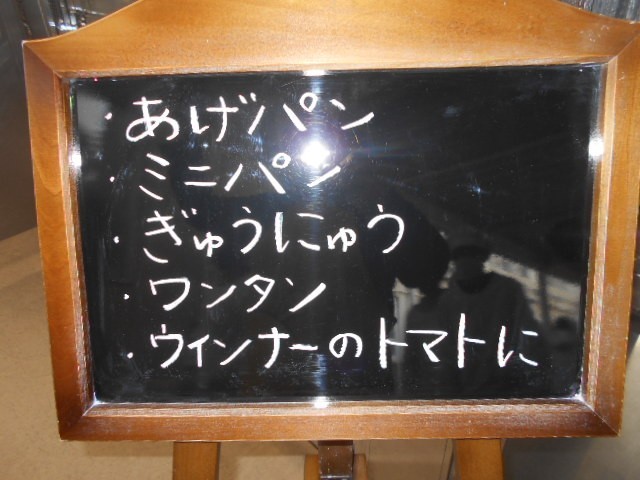 ・あげパン
・ミニパン
・ぎゅうにゅう
・ワンタン
・ウインナーのトマトに